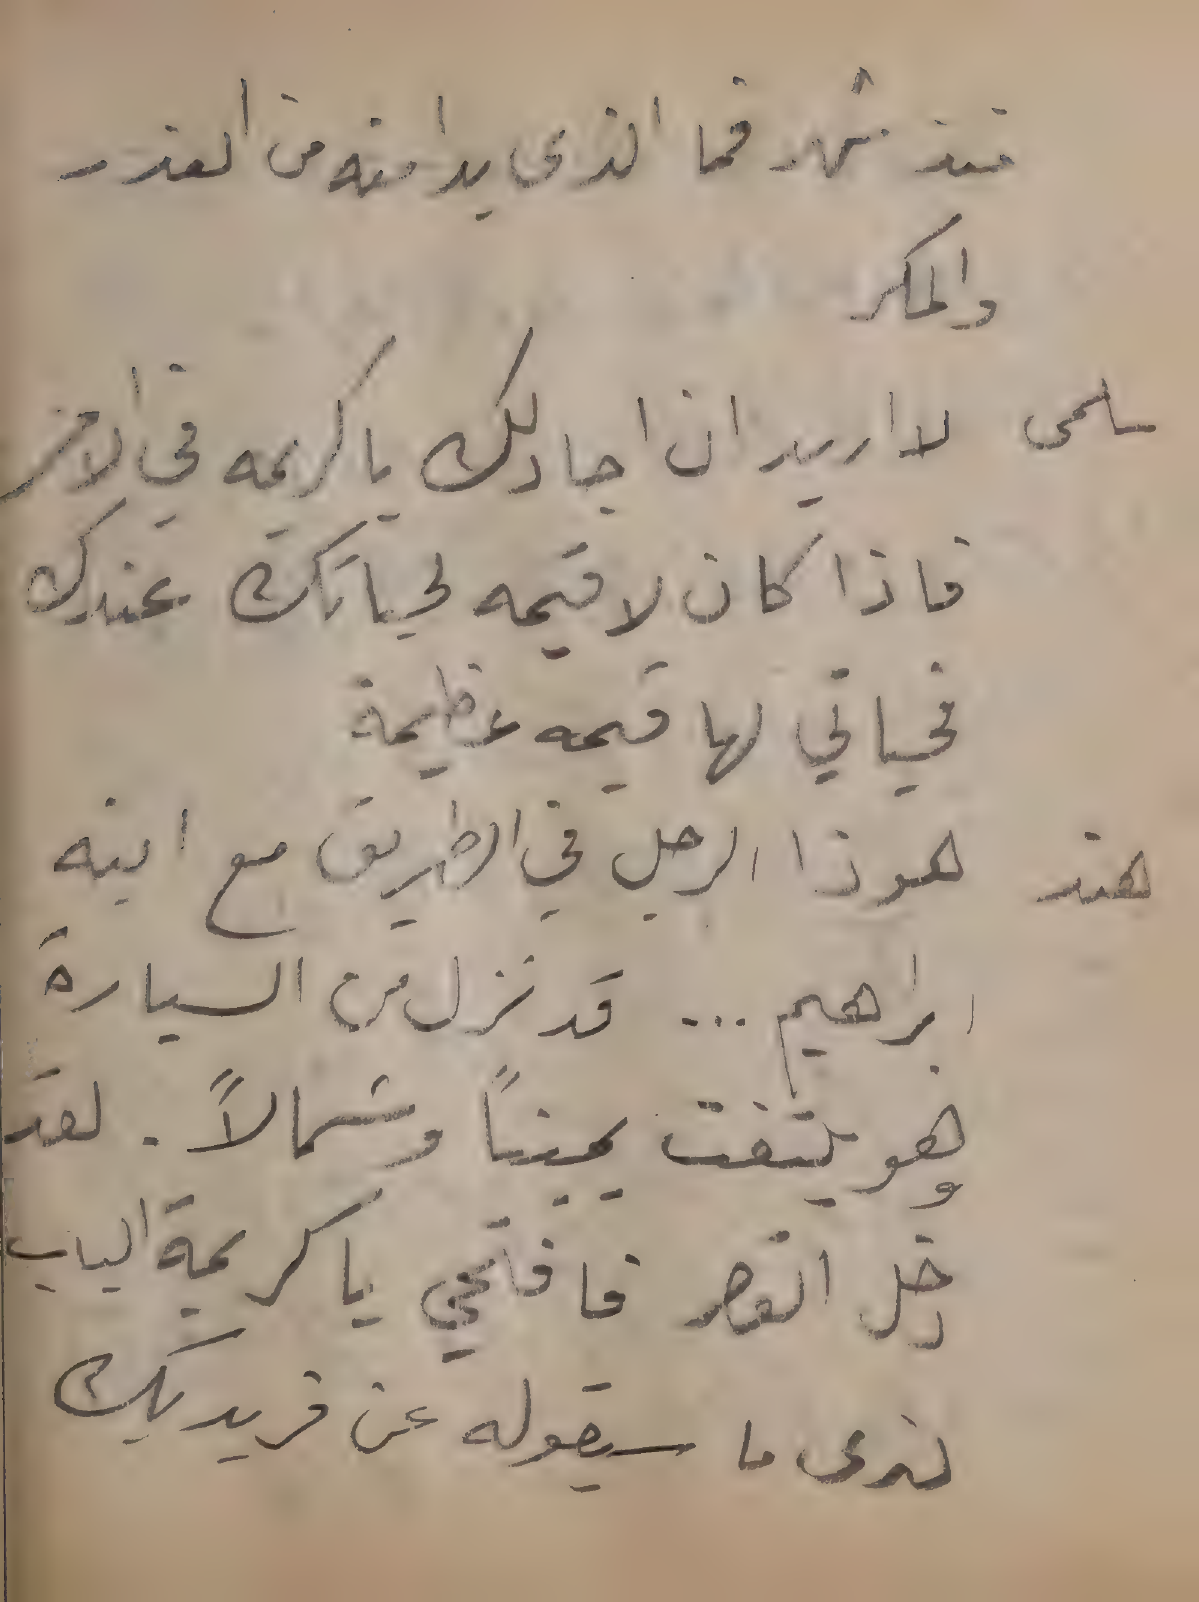 منذ شهر فما الذي بدا منه من الغدر
والمكر
سلمى لا اريد ان اجادلك يا كريمه في الامر
فاذا كان لا قيمه لحياتك عندك
فحياتي لها قيمه عظيمة
هند هوذا الرجل في الطريق مع ابنه
ابراهيم ... قد نزل من السيارة
وهو يلتفت يميناً وشمالاً. لقد
دخل القصر فافتحي يا كريمة الباب
لنرى ما سيقوله عن فريد بك